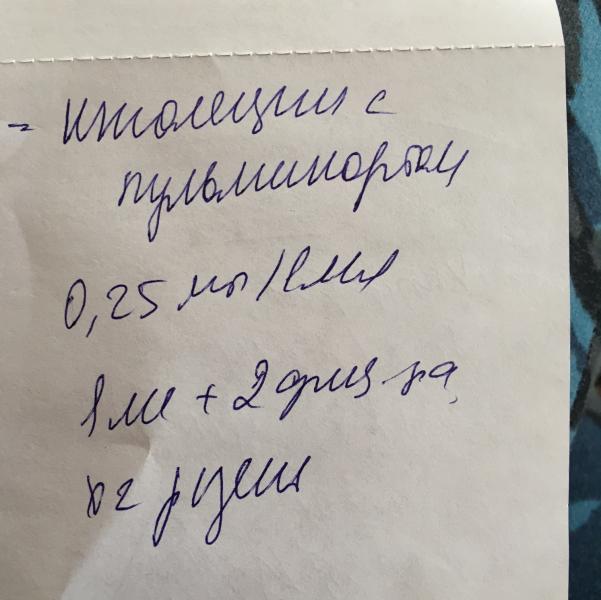 - Ингаляции с
пульмикортом
0,25 мг/1 мл
1 мл + 2 физ. р-ра